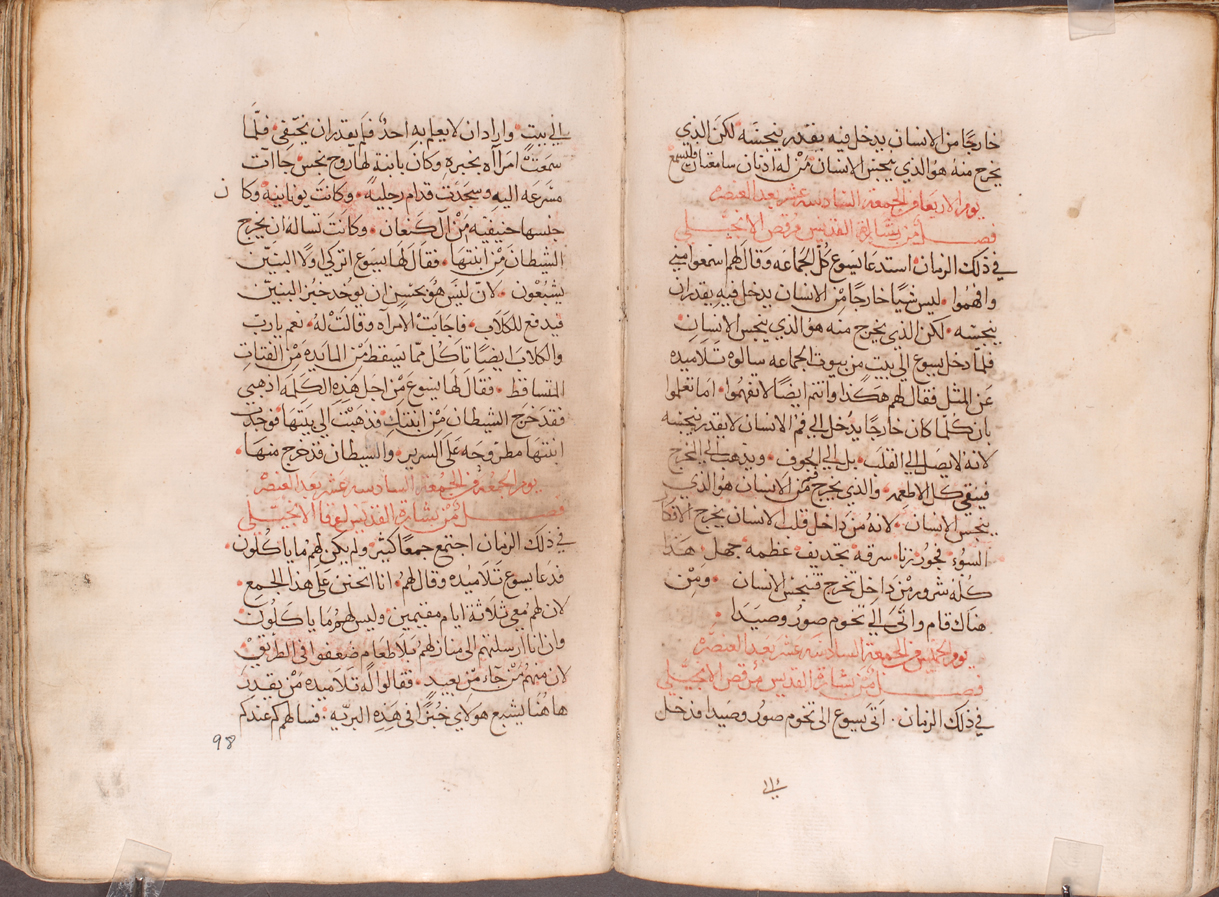 خارجًا من الانسان يدخل فيه يقدر ينجسه لكن الذي
يخرج منه هو الذي ينجس الانسان من له اذنان سامعتان فليسمع
يوم الاربعا من الجمعة السادسه عشر بعد العنصره
فصل من بشارة القديس مرقص الانجيلي
في ذلك الزمان استدعا يسوع كل الجماعه وقال لهم اسمعوا مني
وافهموا ليس شيا خارجا من الانسان يدخل فيه يقدر ان
ينجسه لكن الذي يخرج منه هو الذي ينجس الانسان
فلما دخل يسوع الى بيت من بيوت الجماعه سالوه تلاميده
عن المثل فقال لهم هكذا وانتم ايضا لا تفهموا اما تعلموا
بان كلما كان خارجا يدخل الى فم الانسان لا يقدر ينجسه
لانه لا يصل الى القلب بل الى الجوف ويدهب الى المخرج
فينقي كل الاطعمه والذي يخرج من فم الانسان هو الذي
ينجس الانسان لانه من داخل قلب الانسان يخرج الافكار
السوء فجور زنا سرقه تجديف عظمه جهل هذا
كله شرور من داخل تخرج فتنجس الانسان ومن
هناك قام واتى الى تخوم صور وصيدا
يوم الخميس من الجمعة السادسه عشر بعد العنصره
فصل من بشارة القديس مرقص الانجيلي
في ذلك الزمان اتى يسوع الى تخوم صور وصيدا فدخل
الى بيت واراد ان لا يعلم به احد فلم يقدر ان يختفي فلما
سمعت امراه بخبره وكان بابنة لها روح نجس جات
مسرعه اليه وسجدت قدام رجليه وكانت يونانيه وكان
جنسها حنيفيه من آل كنعان وكانت تساله ان يخرج
الشيطان من ابنتها فقال لها يسوع اتركي اولا البنين
يشبعون لان ليس هو بحسن ان يوخد خبز البنين
فيدفع للكلاب فاجابت الامراه وقالت له نعم يا رب
والكلاب ايضا تاكل مما يسقط من المايده من الفتات
المتساقط فقال لها يسوع من اجل هذه الكلمه اذهبي
فقد خرج الشيطان من ابنتك فذهبت الى بيتها فوجدت
ابنتها مطروحه على السرير والشيطان قد خرج منها
يوم الجمعه من الجمعة السادسه عشر بعد العنصره
فصل من بشارة القديس لوقا الانجيلي
في ذلك الزمان اجتمع جمعا كثير ولم يكن لهم ما ياكلون
فدعا يسوع تلاميده وقال لهم انا اتحنن على هذا الجمع
لان لهم معي ثلاثة ايام مقيمين وليس لهم ما ياكلون
وان انا ارسلتهم الى منازلهم بلا طعام ضعفوا في الطريق
لان منهم من جاء من بعيد فقالوا له تلاميده من يقدر
هاهنا يشبع هولاي خبزا في هذه البريه فسالهم كم عندكم
98